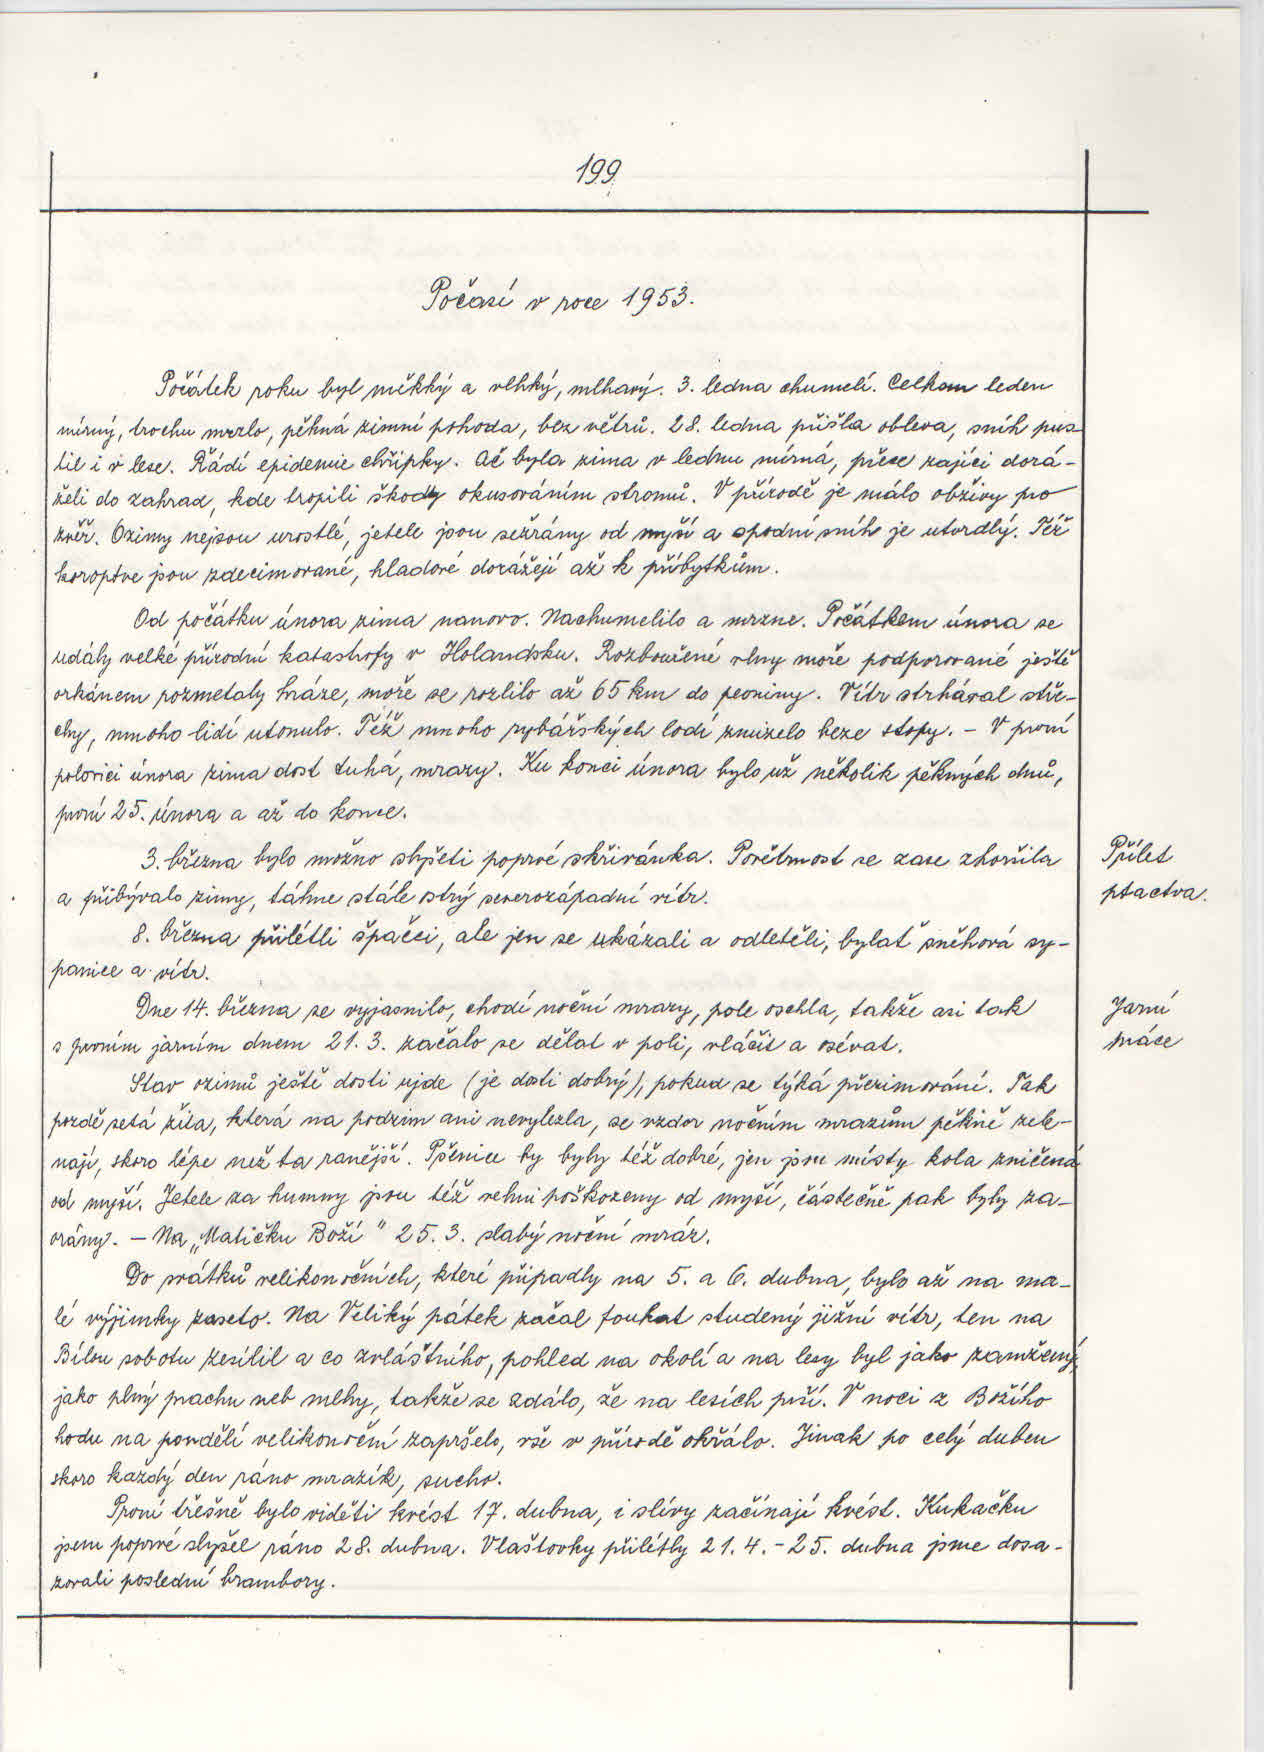 199
Počasí v roce 1953.
Počátek roku byl měkký a vlhký, mlhavý. 3. ledna chumelí. Celkem leden
mírný, trochu mrzlo, pěkná zimní pohoda, bez větrů. 28. ledna přišla obleva, sníh pus-
til i v lese. Řádí epidemie chřipky. Ač byla zima v lednu mírná, přece zajíci dorá-
želi do zahrad, kde tropili škody okusováním stromů. V přírodě je málo obživy pro
zvěř. Ozimy nejsou urostlé, jetele jsou sežrány od myší a spodní sníh je utvrdlý. Též
koroptve jsou zdecimované, hladové dorážejí až k příbytkům.
Od počátku února zima nanovo. Nachumelilo a mrzne. Počátkem února se
udály velké přírodní katastrofy v Holandsku. Rozbouřené vlny moře podporované ještě
orkánem rozmetaly hráze, moře se rozlilo až 65 km do pevniny. Vítr strhával stře-
chy, mnoho lidí utonulo. Též mnoho rybářských lodí zmizelo beze stopy. - V první
polovici února zima dost tuhá, mrazy. Ku konci února bylo už několik pěkných dnů,
první 25. února a až do konce.
3. března bylo možno slyšeti poprvé skřivánka. Povětrnost se zase zhoršila
Přílet
a přibývalo zimy, táhne stále ostrý severozápadní vítr.
ptactva.
8. března přilétli špačci, ale jen se ukázali a odletěli, bylať sněhová sy-
panice a vítr.
Dne 14. března se vyjasnilo, chodí noční mrazy, pole oschla, takže asi tak
Jarní
s prvním jarním dnem 21. 3. začalo se dělat v poli, vláčit a osévat.
práce
Stav ozimů ještě dosti ujde (je dosti dobrý), pokud se týká přezimování. Tak
pozdě setá žita, která na podzim ani nevylezla, se vzdor nočním mrazům pěkně zele-
nají, skoro lépe než ta ranější. Pšenice by byly též dobré, jen jsou místy kola zničená
od myší. Jetele za humny jsou též velmi poškozeny od myší, částečně pak byly za-
orány. - Na „Matičku Boží" 25. 3. slabý noční mráz.
Do svátků velikonočních, které připadly na 5. a 6. dubna, bylo až na ma-
lé výjimky zaseto. Na Veliký pátek začal foukat studený jižní vítr, ten na
Bílou sobotu zesílil a co zvláštního, pohled na okolí a na lesy byl jako zamžený,
jako plný prachu neb mlhy, takže se zdálo, že na lesích prší. V noci z Božího
hodu na pondělí velikonoční zapršelo, vše v přírodě okřálo. Jinak po celý duben
skoro každý den ráno mrazík, sucho.
První třešně bylo viděti kvést 17. dubna, i slívy začínají kvést. Kukačku
jsem poprvé slyšel ráno 28. dubna. Vlaštovky přilétly 21. 4. - 25. dubna jsme dosa-
zovali poslední brambory.